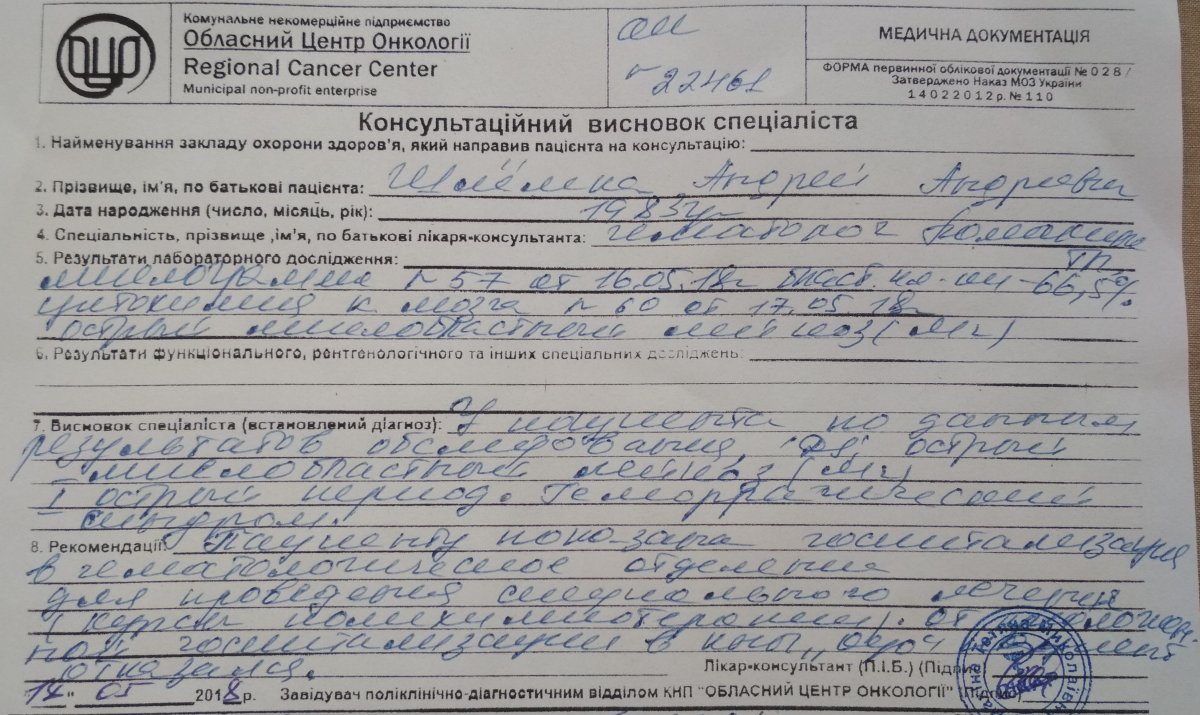 Комунальне некомерційне підприємство
Обласний Центр Онкології
Regional Cancer Center
Municipal non-profit enterprise
22461
МЕДИЧНА ДОКУМЕНТАЦІЯ
ФОРМА первинної облікової документації № 0 2 8 /
Затверджено Наказ МОЗ України
1 4 0 2 2 0 1 2 р. № 1 1 0
Консультаційний висновок спеціаліста
1. Найменування закладу охорони здоров'я, який направив пацієнта на консультацію:
2. Прізвище, ім'я, по батькові пацієнта: Андрей Андреевич
3. Дата народження (число, місяць, рік): 1983г
4. Спеціальність, прізвище ,ім'я, по батькові лікаря-консультанта: гематолог
5. Результати лабораторного дослідження:
миелограмма №57 от 16.05.18г бласт. кл-ки - 66,5%
цитохимия к мозга №60 от 17.05.18г
острый миелобластный лейкоз (М1)
6. Результати функціонального, рентгенологічного та інших спеціальних досліджень:
7. Висновок спеціаліста (встановлений діагноз): У пациента по данным
результатов обследования, Ds, острый
миелобластный лейкоз (М1)
I острый период. Геморрагический
синдром.
8. Рекомендації: Пациенту показана госпитализация
в гематологическое отделение
для проведения специального лечения
(курсы полихимиотерапии). от
госпитализации в
отказался.
Лікар-консультант (П.І.Б.) (Підпис)
05 2018 р. Завідувач поліклінічно-діагностичним відділом КНП "ОБЛАСНИЙ ЦЕНТР ОНКОЛОГІЇ" (Підпис)